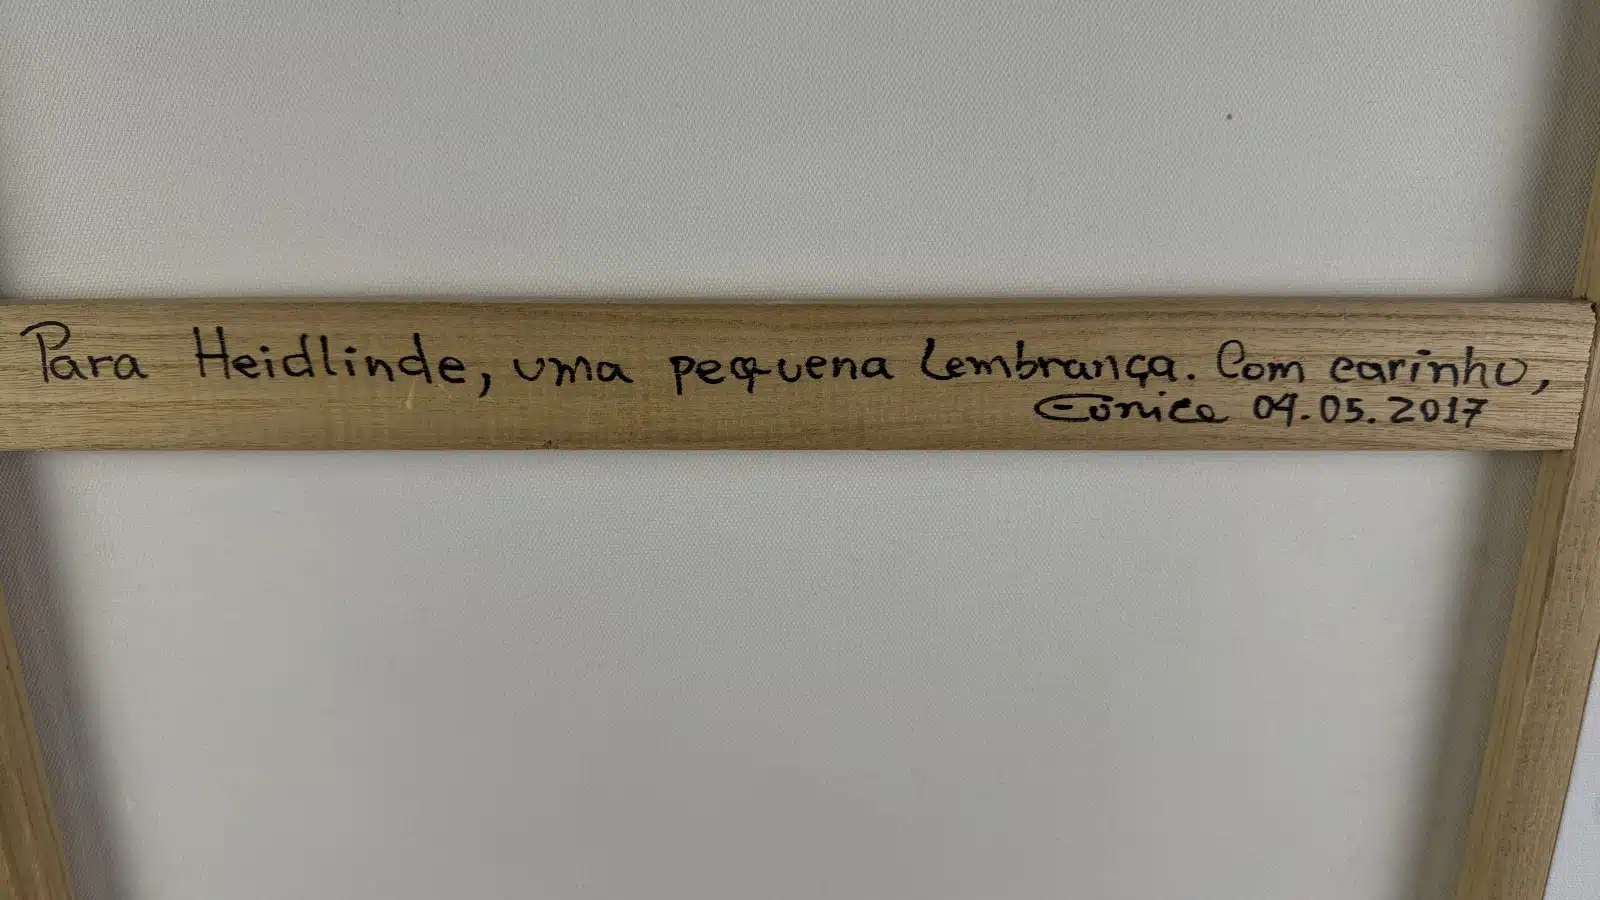 Para Heidlinde, uma pequena Lembrança. Com carinho,
Eunice 04.05.2017